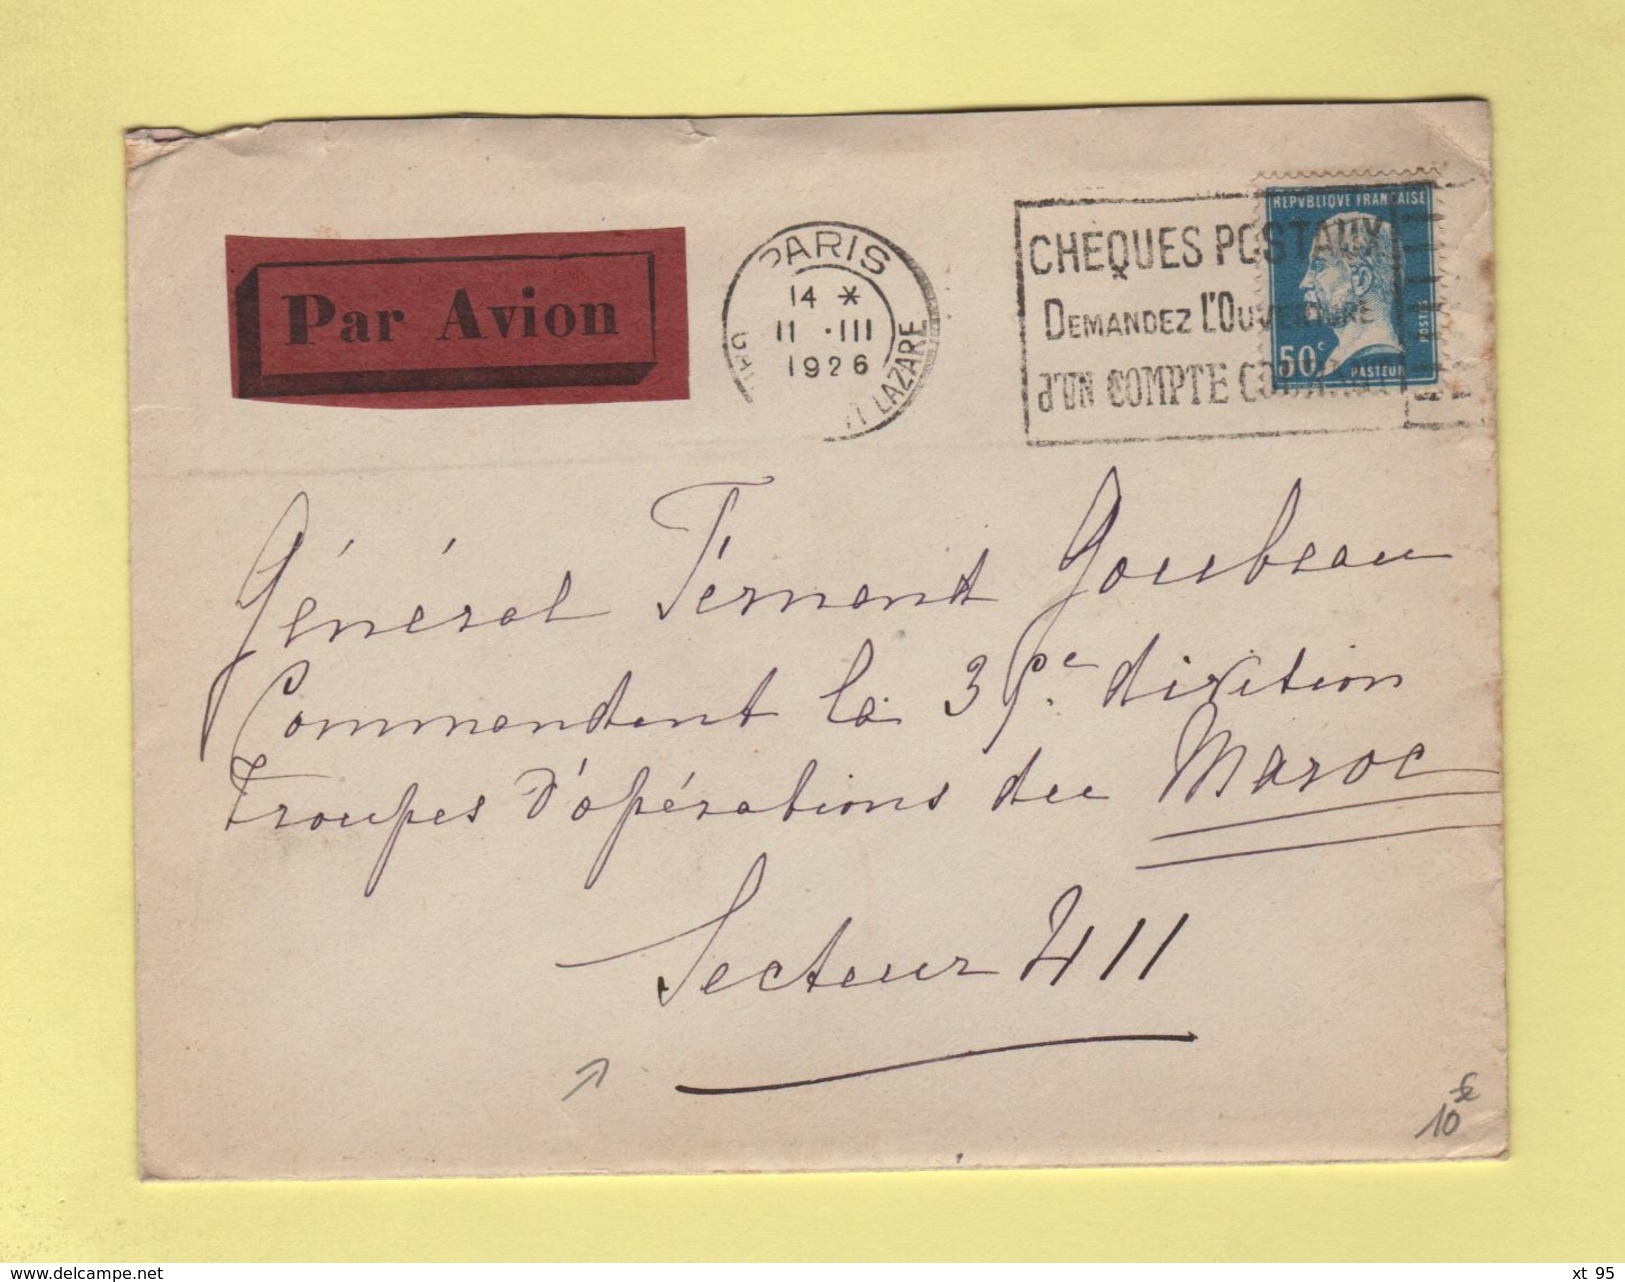 Par Avion
PARIS
14 *
11 · III
1926
LAZARE
CHEQUES POSTAUX
DEMANDEZ L'OUVERTURE
d'UN COMPTE COURANT
REPVBLIQVE FRANÇAISE
POSTES
50c
PASTEUR
Général Fernand Goubeau
Commandant la division
Troupes d'opérations du Maroc
Secteur 411
10
www.delcampe.net
xt 95